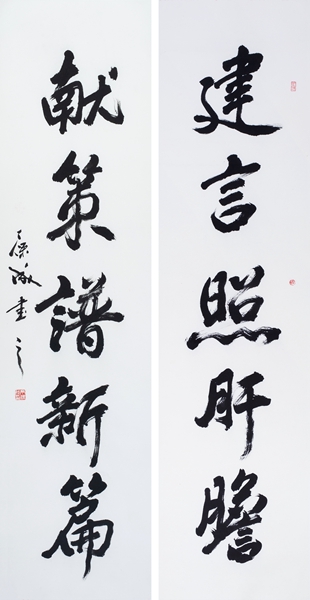 建言照肝膽
献策譜新篇
書之